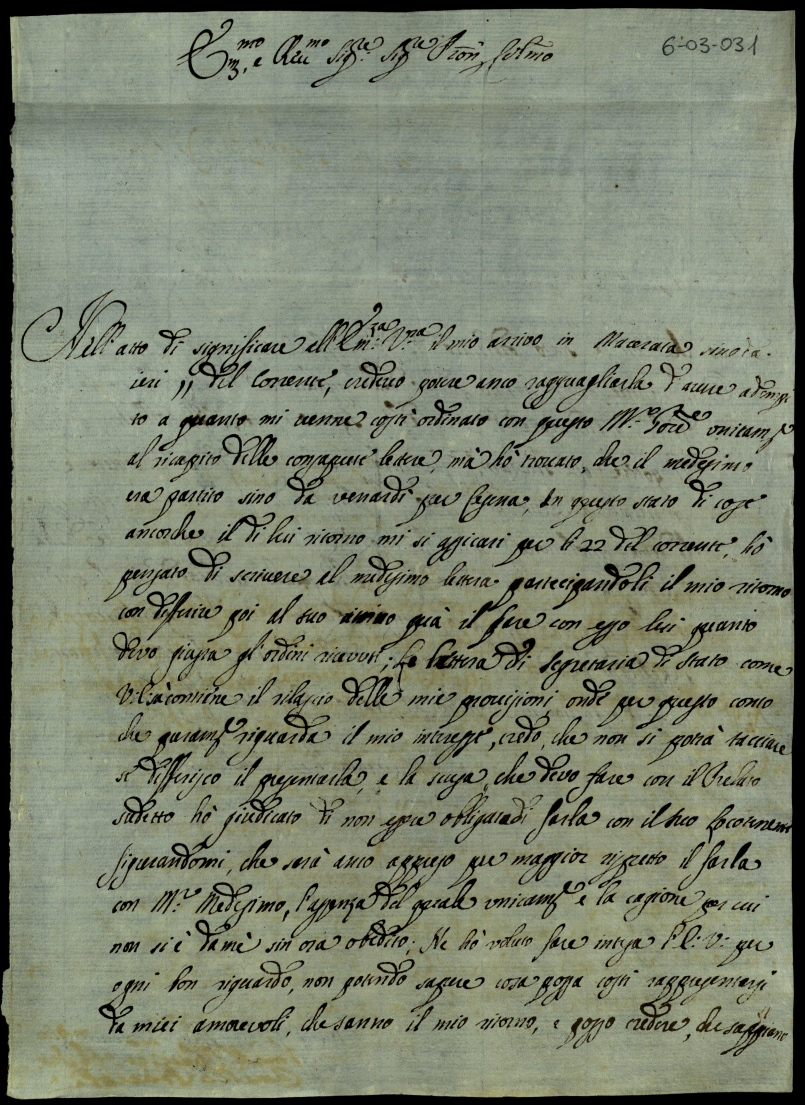 6-03-031
Em.mo e Reu.mo Sig.re Sig.re Pron Col.mo
Nell'atto di significare all'Em.za V.ra il mio arriuo in Macerata sino da
ieri 11 del Corrente, credeuo potere anco ragguagliarla d'auere adempi
to a quanto mi uenne costì ordinato con questo Mr. unicam.te
al ricapito delle consapute lettere, mà hò trouato, che il medesimo
era partito sino da uenardi per Cesena, In questo stato di cose
ancorche il di lui ritorno mi si assicuri per li 22 del corrente, hò
pensato di scriuere al medesimo lettera partecipandoli il mio ritorno
con differire poi al suo arriuo quà il fare con esso lui quanto
deuo giusta gl'ordini riceuuti; La lettera di segretaria di stato come
V: E: sà contiene il rilascio delle mie prouisioni onde per questo conto
che puram.te riguarda il mio interesse, credo, che non si potrà tacciare
se differisco il presentarla, e la scusa, che deuo fare con il Prelato
sudetto hò giudicato di non essere obligato di farla con il suo Locotenente
figurandomi, che sarà anco appreso per maggior rispetto il farla
con Mr. Medesimo, l'assenza del quale unicam.te è la cagione per cui
non si è da mè sin ora obedito; Ne hò uoluto fare intesa l'E: V: per
ogni bon riguardo, non potendo sapere cosa possa costì rappresentarsi
da miei amoreuoli, che sanno il mio ritorno, e posso credere, che sappiano